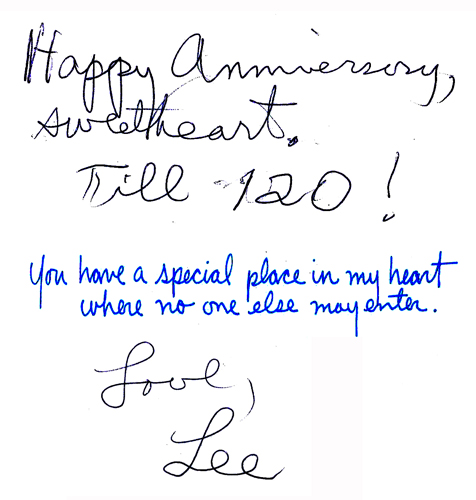 Happy Anniversary,
sweetheart.
Till 120!
You have a special place in my heart
where no one else may enter.
Love,
Lee